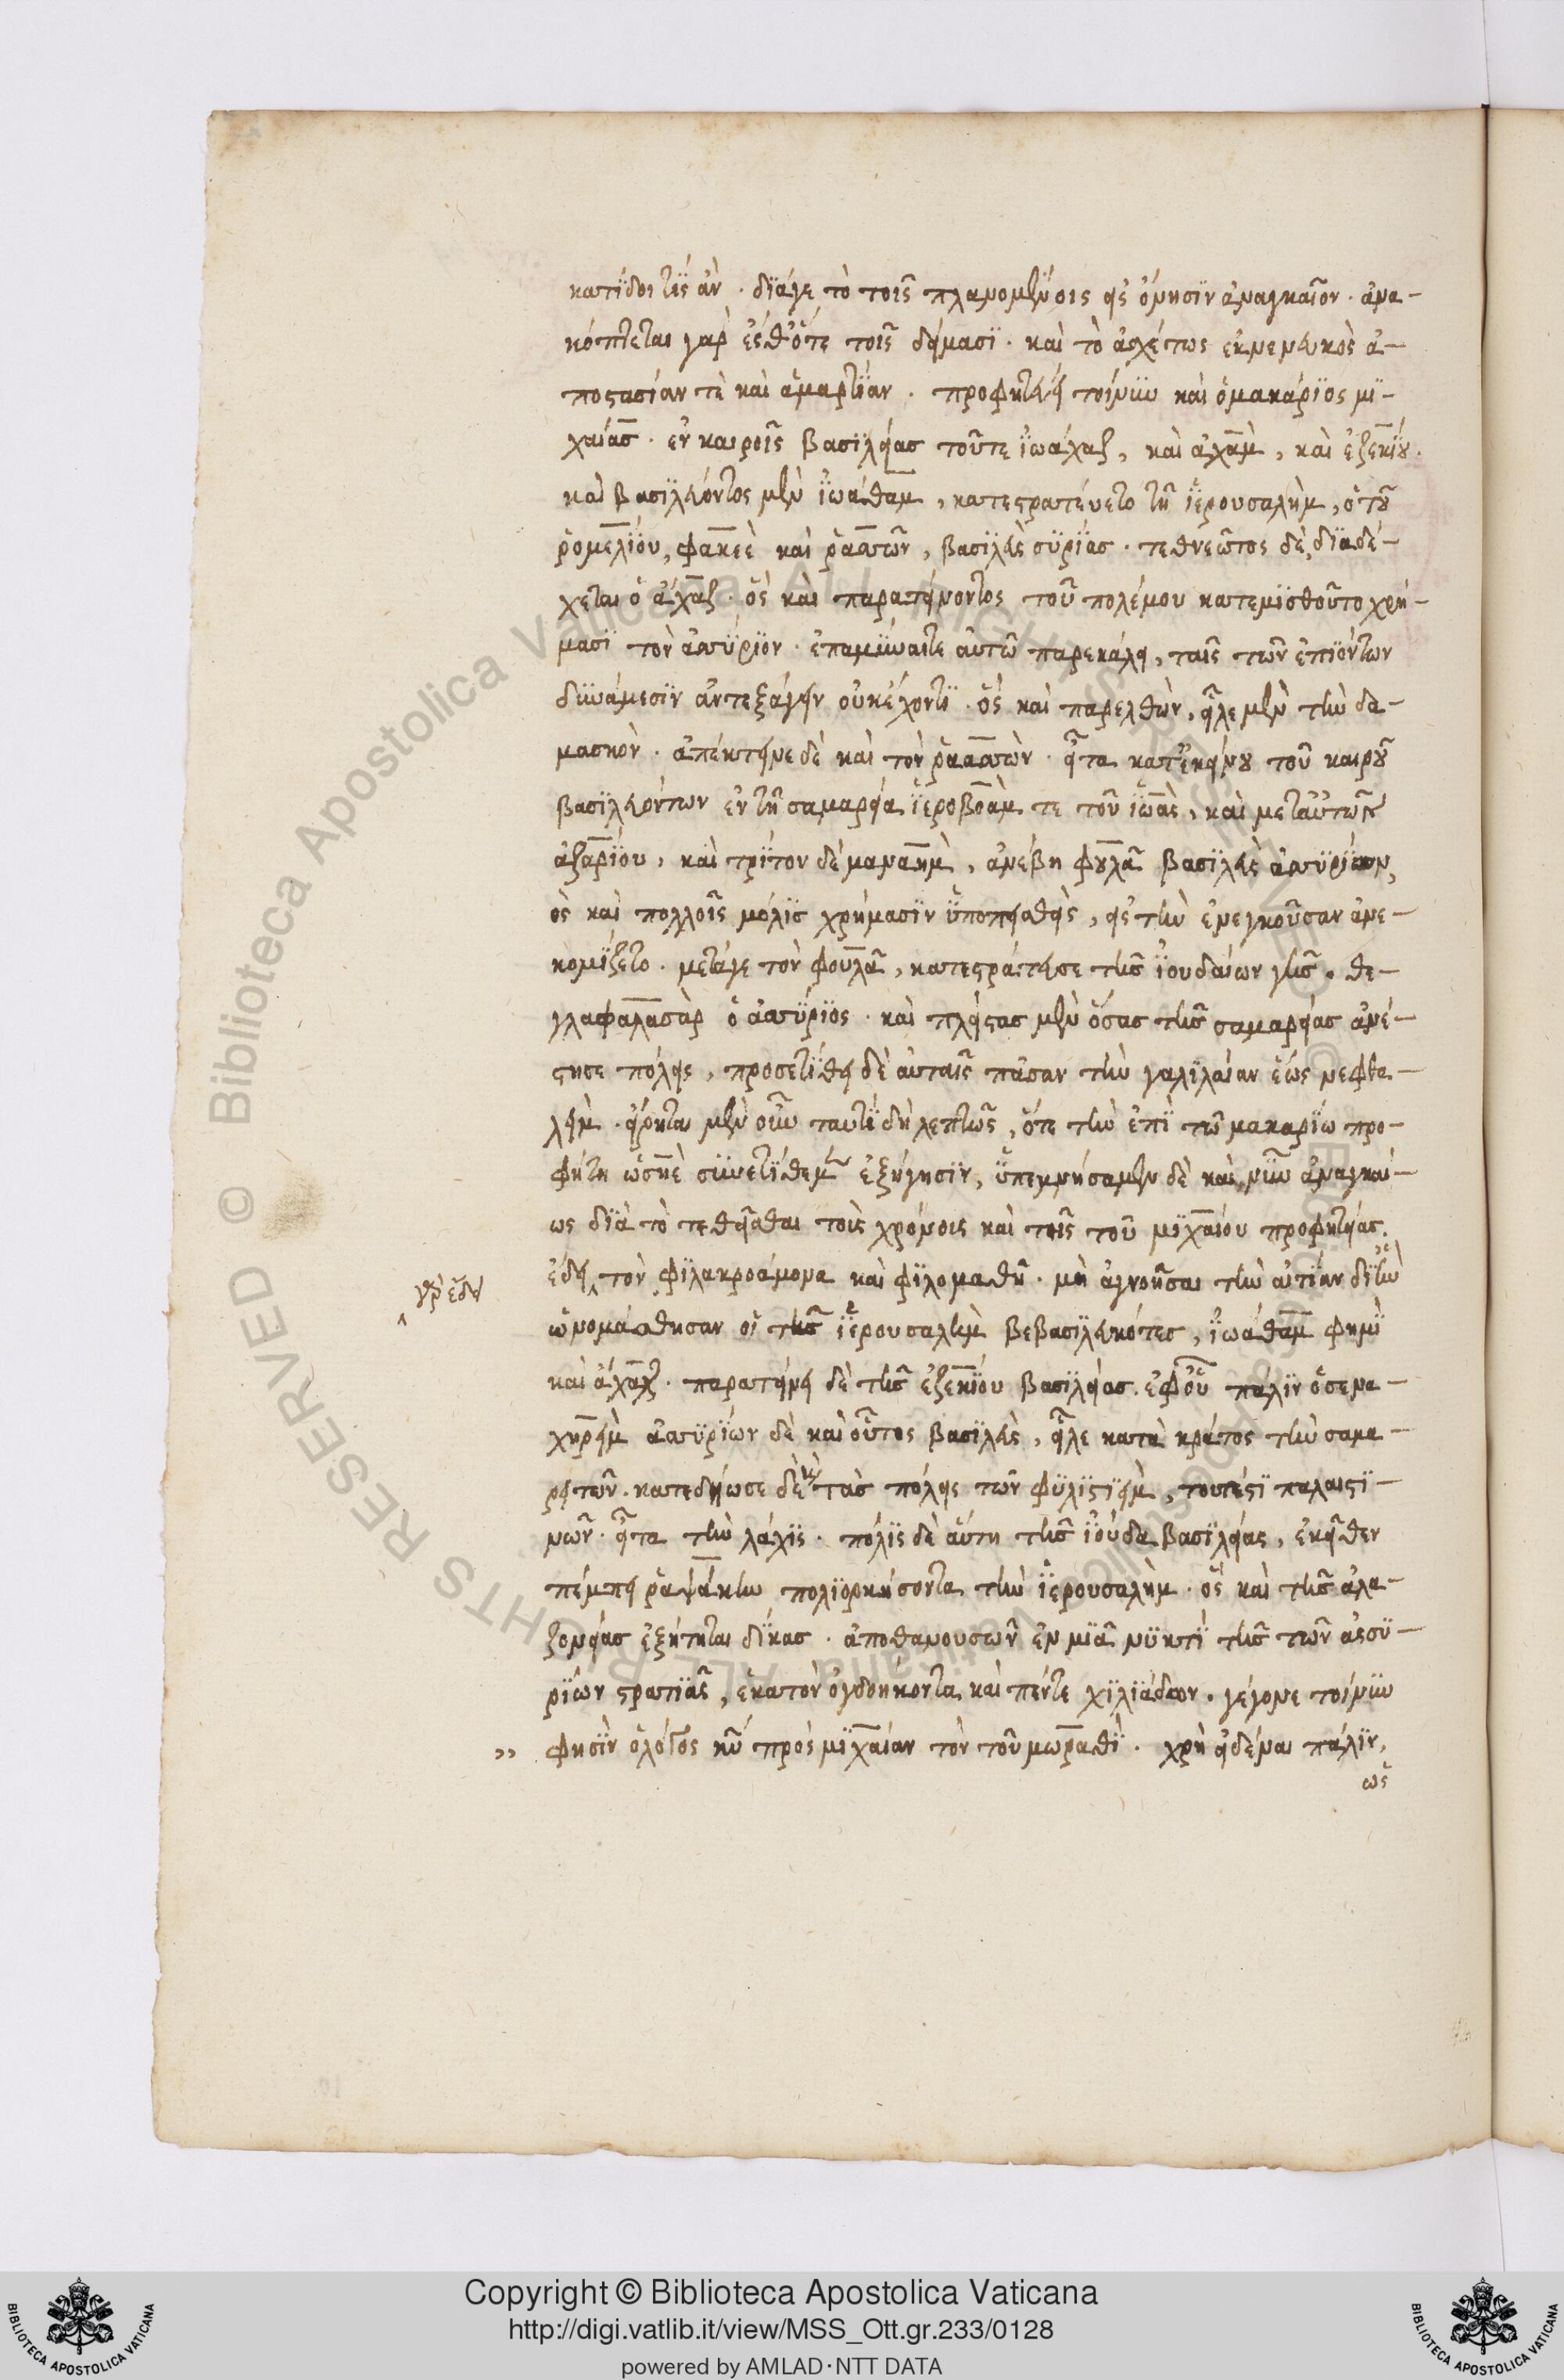 κατίδοι τὶς ἂν. διάγε τὸ τοῖς πλανωμένοις εἰς ὄνησιν ἀναγκαῖον. ἀνα-
κόπτεται γὰρ ἔσθ' ὅτε τοῖς δείμασι. καὶ τὸ ἀσχέτως ἐκνενευκὸς ἀ-
ποστασίαν τὲ καὶ ἁμαρτίαν. προφητεύει τοίνυν καὶ ὁ μακάριος μι-
χαίας. ἐν καιροῖς βασιλείας τοῦτε ἰωάχαζ, καὶ ἀχὰμ, καὶ ἐζεκίου.
καὶ βασιλεύοντος μὲν ἰωάθαμ, κατεστρατεύετο τῆ ἱερουσαλὴμ, ὁ τοῦ
ῥομελίου, φακεὲ καὶ ῥαασσῶν, βασιλεὺς συρίας. τεθνεῶτος δὲ, διαδέ-
χεται ὁ ἄχαζ. ὃς καὶ παρατείνοντος τοῦ πολέμου κατεμισθοῦτο χρή-
μασι τὸν ἀσσύριον. ἐπαμύναιτε αὐτῶ παρεκάλει, ταῖς τῶν ἐπιόντων
δυνάμεσιν ἀντεξάγειν οὐκ ἔχοντι. ὃς καὶ παρελθὼν, εἷλε μὲν τὴν δα-
μασκὸν. ἀπέκτεινε δὲ καὶ τὸν ῥαασσὼν. εἶτα κατ' ἐκείνου τοῦ καιροῦ
βασιλευόντων ἐν τῆ σαμαρεία ἱεροβοὰμ τε τοῦ ἰωὰς, καὶ μετ' αὐτὸν
ἀζαρίου, καὶ τρίτον δὲ μαναὴμ, ἀνέβη φουλὰ βασιλεὺς ἀσσυρίων,
ὃς καὶ πολλοῖς μόλις χρήμασιν ὑποπεισθεὶς, εἰς τὴν ἐνεγκοῦσαν ἀνε-
κομίζετο. μετάγε τὸν φουλᾶ, κατεστράτευσε τῆς ἰουδαίων γῆς. θε-
γλαφαλασὰρ ὁ ἀσσύριος. καὶ πλείστας μὲν ὅσας τῆς σαμαρείας ἀνέ-
στησε πόλεις, προσετίθει δὲ αὐταῖς πᾶσαν τὴν γαλιλαίαν ἕως νεφθα-
λεὶμ. εἴρηται μὲν οὖν ταυτὶ δὴ λεπτῶς, ὅτε τὴν ἐπὶ τῶ μακαρίω προ-
φήτη ὠσηὲ συνετίθεμεν ἐξήγησιν, ὑπεμνήσαμεν δὲ καὶ νῦν ἀναγκαί-
ως διὰ τὸ τεθεῖσθαι τοὶς χρόνοις καὶ τοῖς τοῦ μιχαίου προφητείας.
γρ ἔδει
ἔδει τὸν φιλακροάμονα καὶ φιλομαθῆ. μὴ ἀγνοῆσαι τὴν αἰτίαν δι' ἣν
ὠνομάσθησαν οἱ τῆς ἱερουσαλὴμ βεβασιλευκότες, ἰωάθαμ φημὶ
καὶ ἄχαζ. παρατείνει δὲ τῆς ἐζεκίου βασιλείας. ἐφ' οὗ παλὶν ὁ σενα-
χηρεὶμ ἀσσυρίων δὲ καὶ οὗτος βασιλεὺς, εἷλε κατὰ κράτος τὴν σαμα-
ρειτῶν. κατεδήωσε δὲ καὶ τὰς πόλεις τῶν φυλιστιεὶμ, τουτέστι παλαιστι-
νῶν. εἶτα τὴν λάχις. πόλις δὲ αὕτη τῆς ἰούδα βασιλείας, ἐκεῖθεν
πέμπει ῥαψάκην πολιορκήσοντα τὴν ἱερουσαλὴμ. ὃς καὶ τῆς ἀλα-
ζονείας ἐξήτηται δίκας. ἀποθανουσῶν ἐν μιᾶ νυκτὶ τῆς τῶν ἀσσυ-
ρίων στρατιᾶς, ἑκατὸν ὀγδοήκοντα καὶ πέντε χιλιάδων. γέγονε τοίνυν
,, φησὶν ὁ λόγος κυ πρὸς μιχαίαν τὸν τοῦ μωραθὶ. χρὴ εἰδέναι πάλιν,
ὡς
Copyright © Biblioteca Apostolica Vaticana
http://digi.vatlib.it/view/MSS_Ott.gr.233/0128
powered by AMLAD·NTT DATA